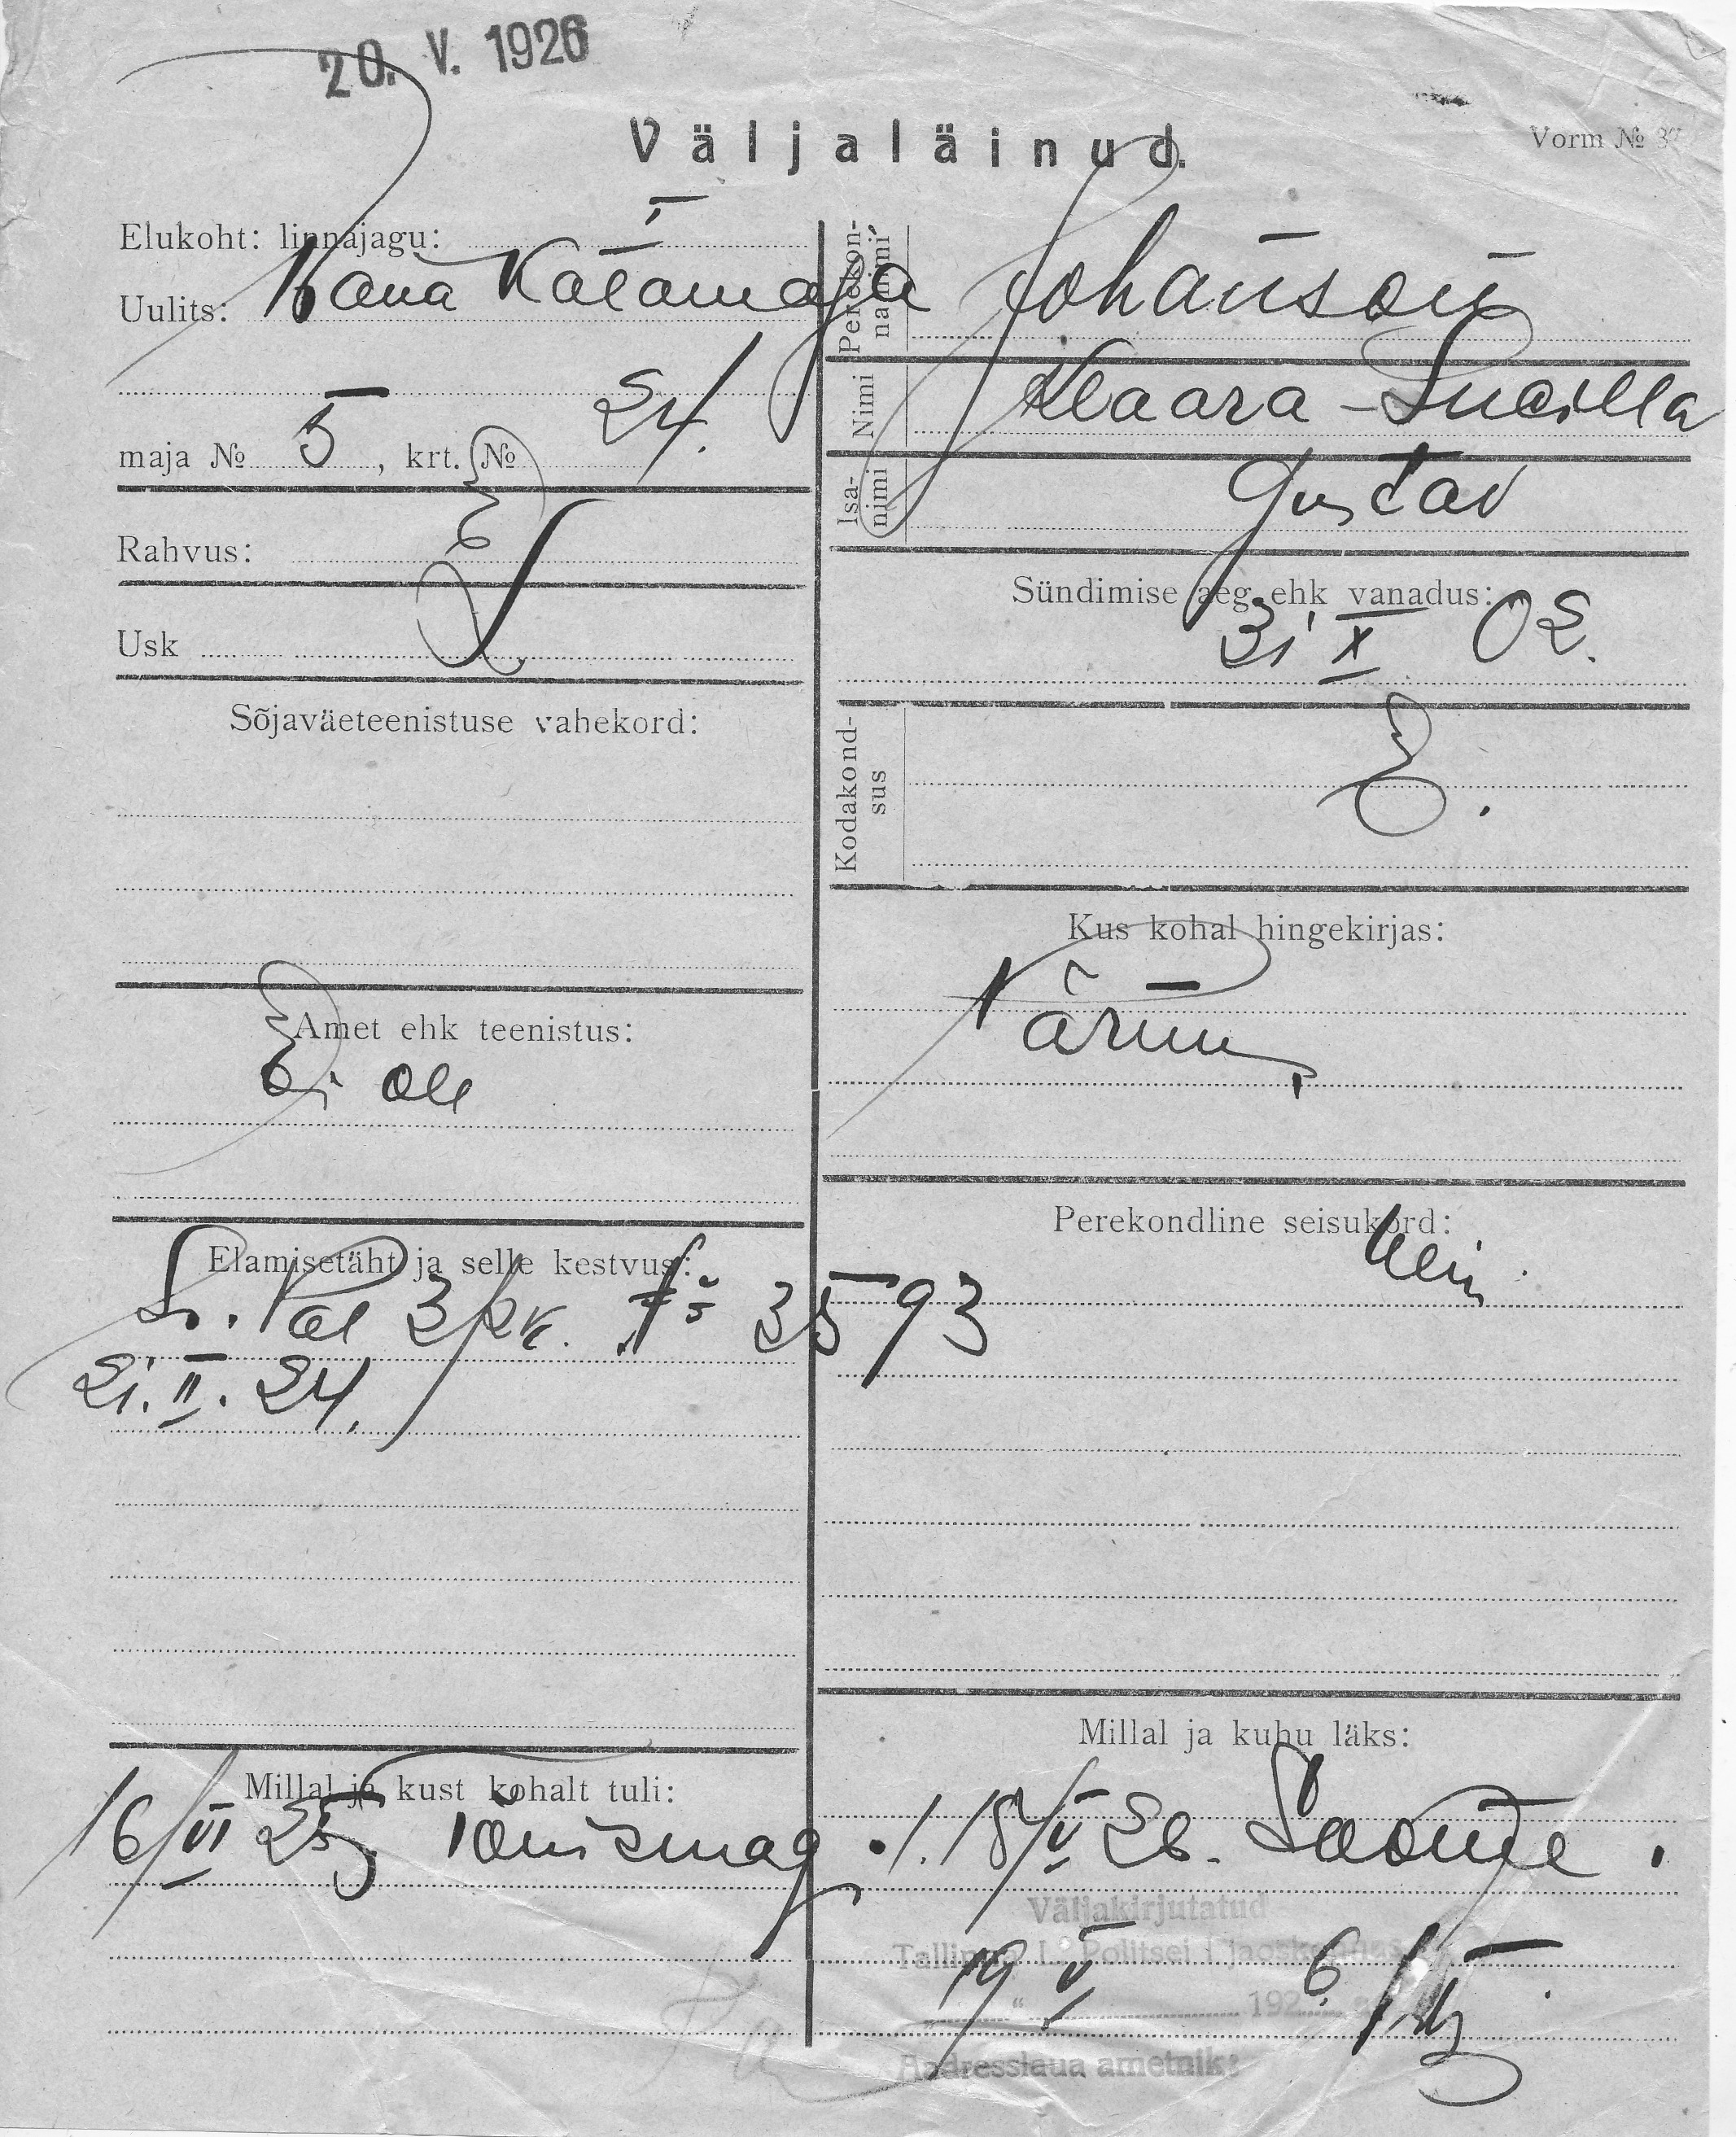 20. V. 1926
Väljaläinud.
Vorm № 37
Elukoht: linnajagu: I
Uulits: Vana Kalamaja
maja № 5, krt. № 24.
Rahvus: E
Usk
Sõjaväeteenistuse vahekord:
Amet ehk teenistus:
Ei ole
Elamisetäht ja selle kestvus:
3 № 3593
21. II. 24.
Millal ja kust kohalt tuli:
16/VI 25 Tõnismäg
Perekonnanimi Johanson
Nimi Klaara-Lucilla
Isanimi Gustav
Sündimise aeg ehk vanadus:
31 X 02.
Kodakondsus E.
Kus kohal hingekirjas:
Pärnu
Perekondline seisukord:
Millal ja kuhu läks:
18/V 26. Soome.
Väljakirjutatud
Tallinna L. Politsei I jaoskonnas
19 V 1926
Aadresslaua ametnik: